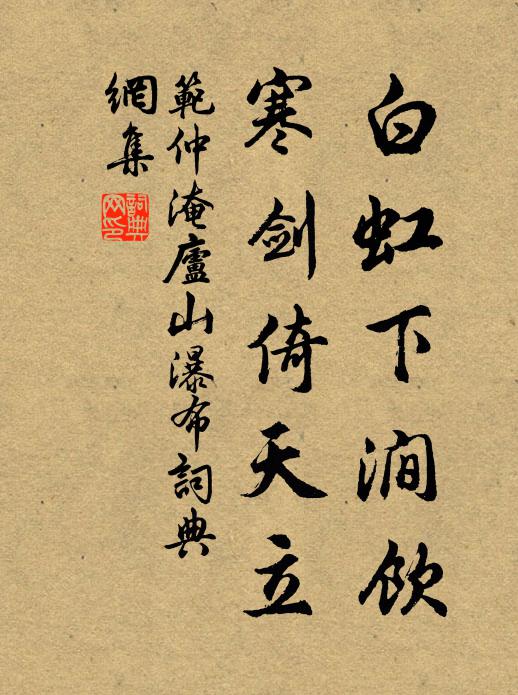 白虹下澗飲
寒劍倚天立
範仲淹廬山瀑布詞典
網集
詞典
网印